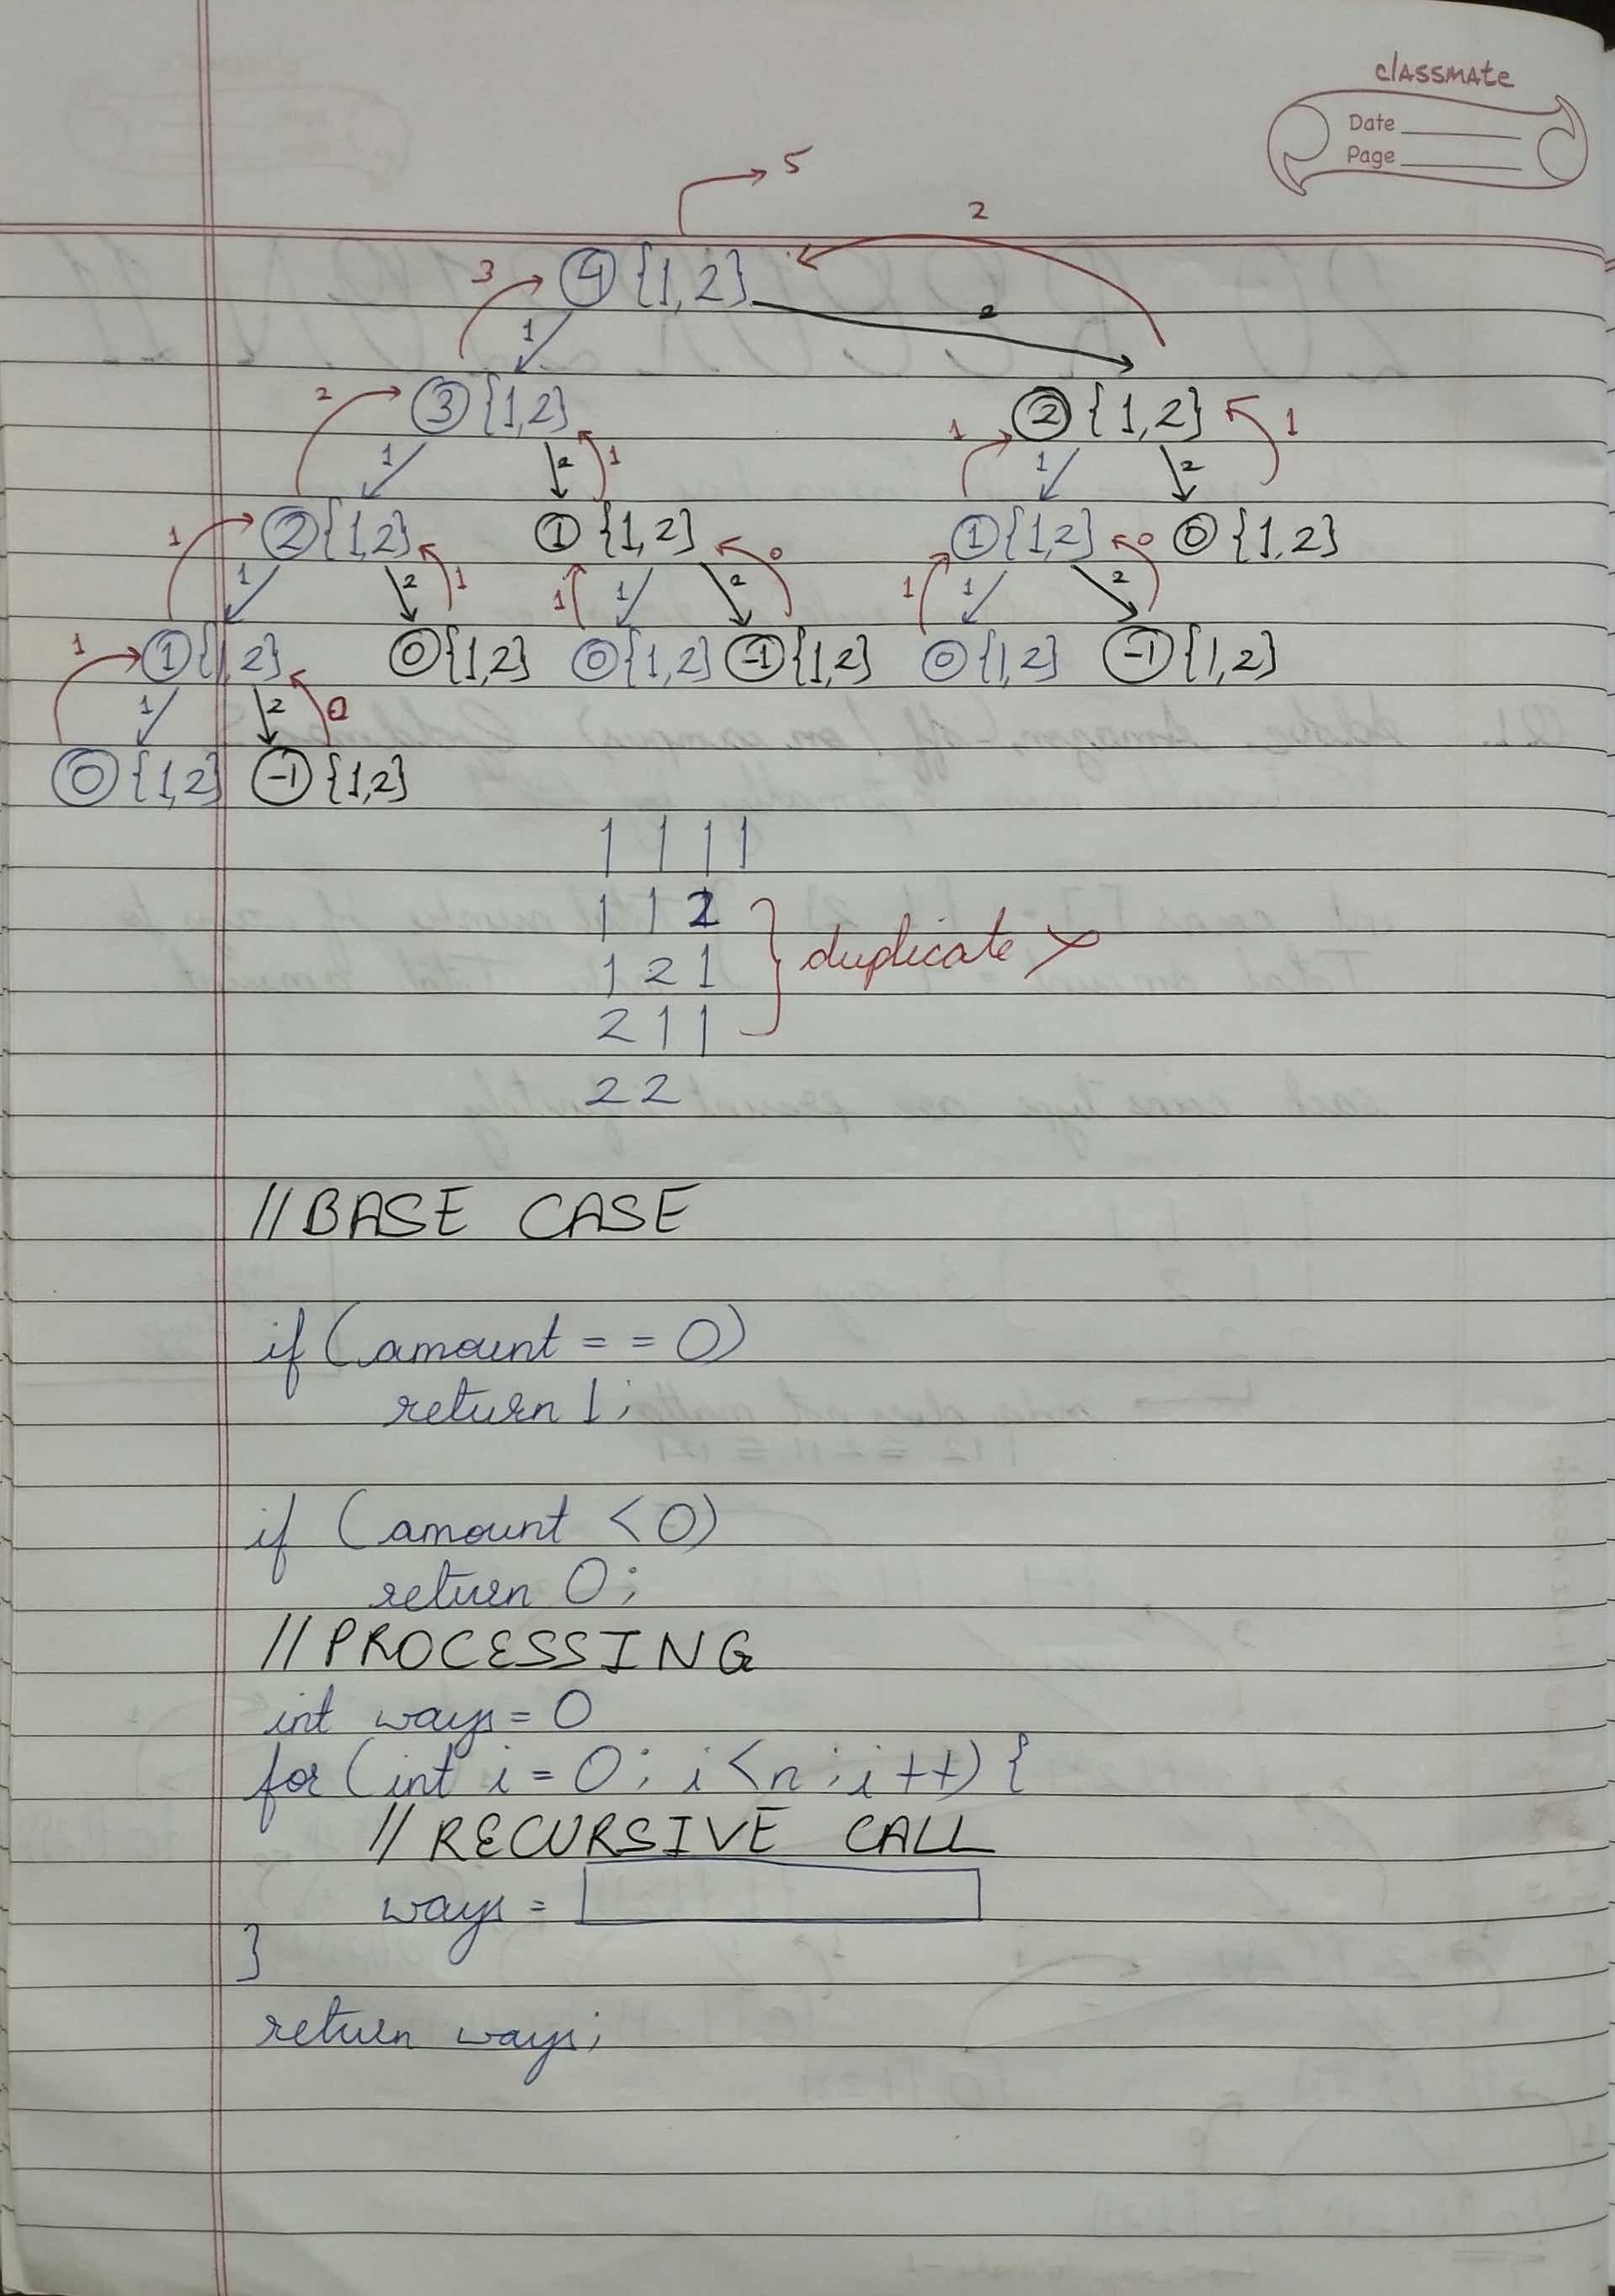 classmate
Date
Page
5
2
3 4 {1,2}
1 2
2 3 {1,2} 1 2 {1,2} 1
1 2 1 1 2
1 2 {1,2} 1 {1,2} 0 1 {1,2} 0 0 {1,2}
1 2 1 1 1 2 1 1 2
1 1 {1,2} 0 {1,2} 0 {1,2} -1 {1,2} 0 {1,2} -1 {1,2}
1 2 0
0 {1,2} -1 {1,2}
1 1 1 1
1 1 2
1 2 1 duplicate
2 1 1
2 2
//BASE CASE
if (amount == 0)
return 1;
if (amount < 0)
return 0;
//PROCESSING
int ways = 0
for (int i = 0; i < n; i++) {
//RECURSIVE CALL
ways =
}
return ways;